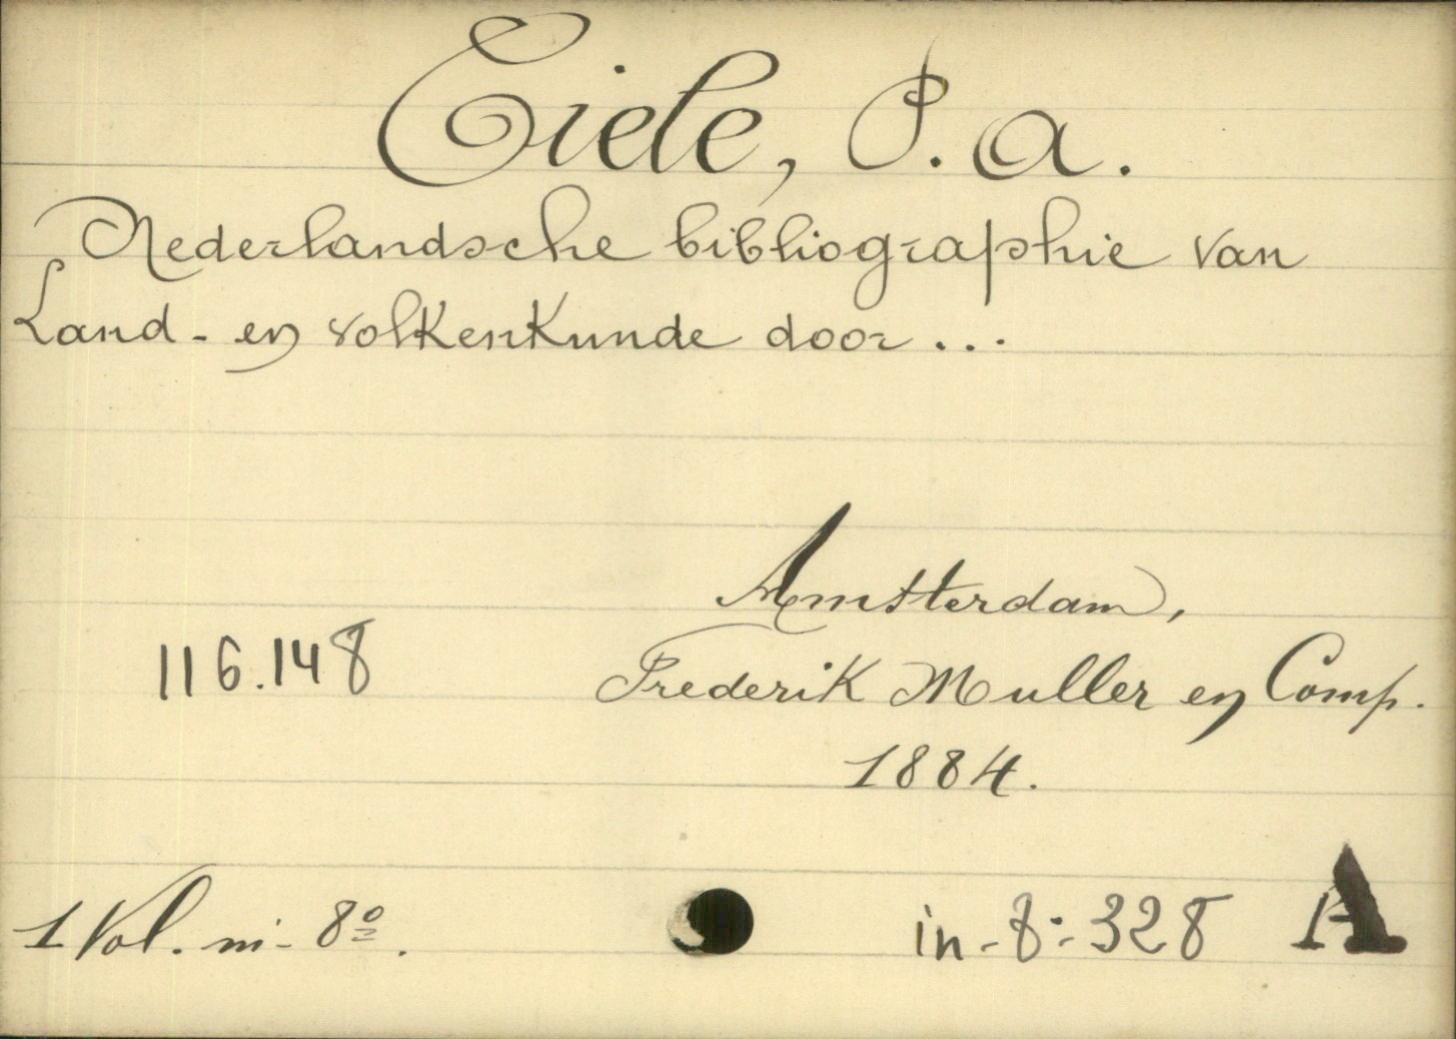 Tiele, P. a.
Nederlandsche bibliographie van
Land- en volkenkunde door...
Amsterdam,
116.148 Frederik Muller en Comp.
1884.
1 Vol. in-8º. in-8º-328 A